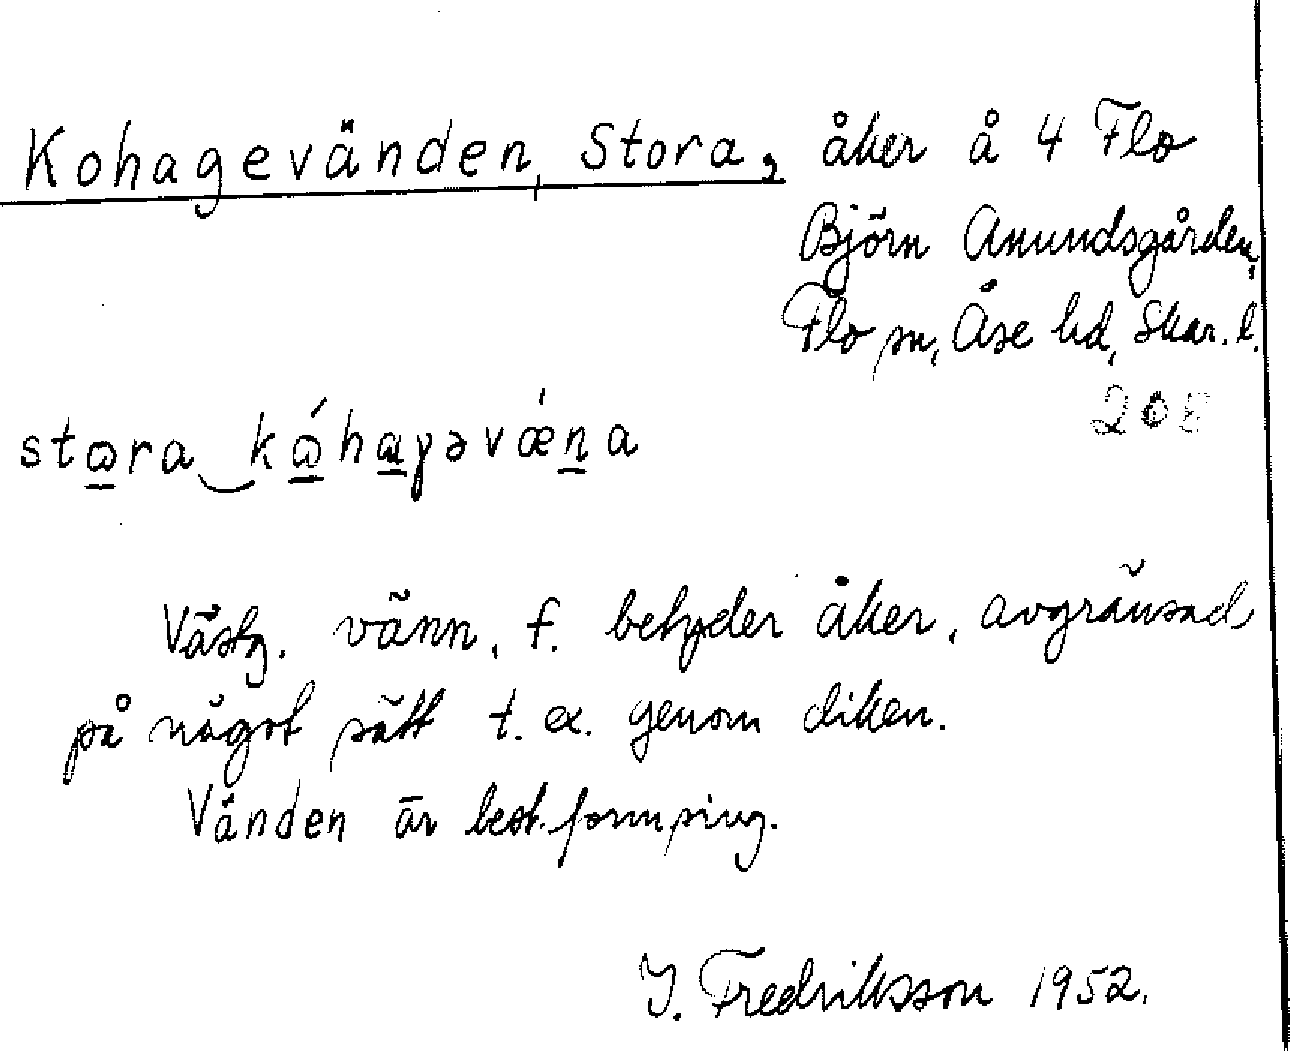 Kohagevänden, Stora, åker å 4 Flo
Björn Anundsgården,
Flo sn, Åse hd, Skar. l.
208
stɷra kɷ́haγəvǽna
Västg. vänn, f. betyder åker, avgränsad
på något sätt t. ex. genom diken.
Vänden är best. form sing.
I. Fredriksson 1952.